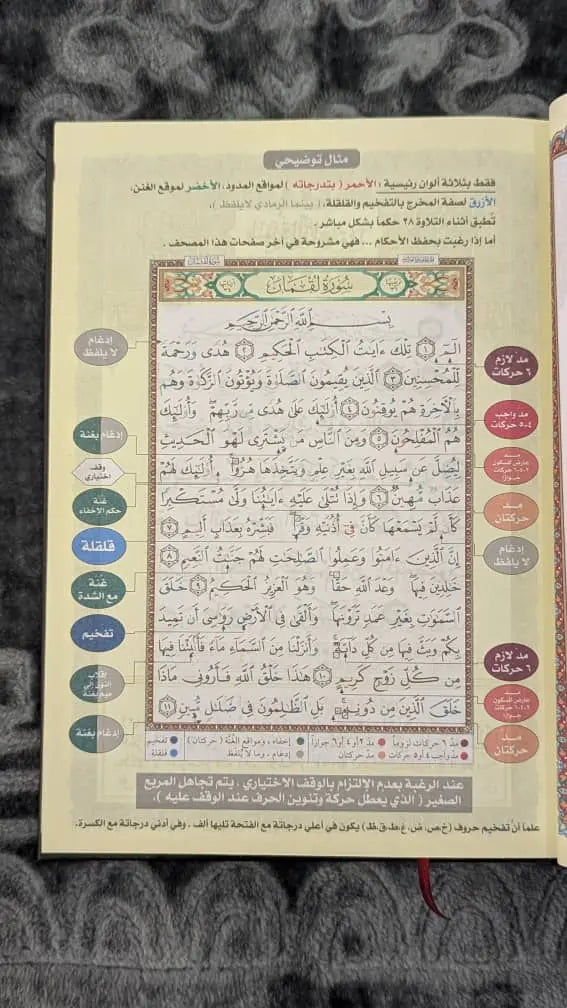 مثال توضيحي
فقط بثلاثة ألوان رئيسية : الأحمر ( بتدرجاته ) لمواقع المدود، الأخضر لموقع الغنن،
الأزرق لصفة المخرج بالتفخيم والقلقلة، ( بينما الرمادي لايلفظ )،
تُطبق أثناء التلاوة ٢٨ حكماً بشكل مباشر .
أما إذا رغبت بحفظ الأحكام ... فهي مشروحة في آخر صفحات هذا المصحف .
سُورَةُ لُقْمَان
بِسْمِ اللَّهِ الرَّحْمَٰنِ الرَّحِيمِ
الٓمٓ ١ تِلْكَ ءَايَٰتُ الْكِتَٰبِ الْحَكِيمِ ٢ هُدًى وَرَحْمَةً
لِّلْمُحْسِنِينَ ٣ الَّذِينَ يُقِيمُونَ الصَّلَوٰةَ وَيُؤْتُونَ الزَّكَوٰةَ وَهُم
بِالْءَاخِرَةِ هُمْ يُوقِنُونَ ٤ أُوْلَٰٓئِكَ عَلَىٰ هُدًى مِّن رَّبِّهِمْ وَأُوْلَٰٓئِكَ
هُمُ الْمُفْلِحُونَ ٥ وَمِنَ النَّاسِ مَن يَشْتَرِى لَهْوَ الْحَدِيثِ
لِيُضِلَّ عَن سَبِيلِ اللَّهِ بِغَيْرِ عِلْمٍ وَيَتَّخِذَهَا هُزُوًا أُوْلَٰٓئِكَ لَهُمْ
عَذَابٌ مُّهِينٌ ٦ وَإِذَا تُتْلَىٰ عَلَيْهِ ءَايَٰتُنَا وَلَّىٰ مُسْتَكْبِرًا
كَأَن لَّمْ يَسْمَعْهَا كَأَنَّ فِىٓ أُذُنَيْهِ وَقْرًا فَبَشِّرْهُ بِعَذَابٍ أَلِيمٍ ٧
إِنَّ الَّذِينَ ءَامَنُوا وَعَمِلُوا الصَّٰلِحَٰتِ لَهُمْ جَنَّٰتُ النَّعِيمِ ٨
خَٰلِدِينَ فِيهَا وَعْدَ اللَّهِ حَقًّا وَهُوَ الْعَزِيزُ الْحَكِيمُ ٩ خَلَقَ
السَّمَٰوَٰتِ بِغَيْرِ عَمَدٍ تَرَوْنَهَا وَأَلْقَىٰ فِى الْأَرْضِ رَوَٰسِىَ أَن تَمِيدَ
بِكُمْ وَبَثَّ فِيهَا مِن كُلِّ دَآبَّةٍ وَأَنزَلْنَا مِنَ السَّمَآءِ مَآءً فَأَنۢبَتْنَا فِيهَا
مِن كُلِّ زَوْجٍ كَرِيمٍ ١٠ هَٰذَا خَلْقُ اللَّهِ فَأَرُونِى مَاذَا
خَلَقَ الَّذِينَ مِن دُونِهِ بَلِ الظَّٰلِمُونَ فِى ضَلَٰلٍ مُّبِينٍ ١١
مد لازم
٦ حركات
مد واجب
٤-٥ حركات
مد
عارض للسكون
٢-٤-٦ حركات
جوازاً
مد
حركتان
إدغام
لا يلفظ
مد لازم
٦ حركات
مد
عارض للسكون
٢-٤-٦ حركات
جوازاً
مد
حركتان
إدغام
لا يلفظ
إدغام بغنة
وقف
اختياري
غنة
حكم الإخفاء
قلقلة
غنة
مع الشدة
تفخيم
إقلاب
النون إلى
ميم بغنة
إدغام بغنة
مد ٦ حركات لزوماً مد ٢ أو ٤ أو ٦ جوازاً إخفاء، ومواقع الغُنَّة (حركتان) تفخيم
مد واجب ٤ أو ٥ حركات مد حركتان إدغام، وما لا يُلفظ قلقلة
عند الرغبة بعدم الإلتزام بالوقف الاختياري ، يتم تجاهل المربع
الصغير ( الذي يعطل حركة وتنوين الحرف عند الوقف عليه ) .
علماً أنَّ تفخيم حروف (خ،ص،ض،غ،ط،ق،ظ) يكون في أعلى درجاتة مع الفتحة تليها ألف ، وفي أدنى درجاتة مع الكسرة.